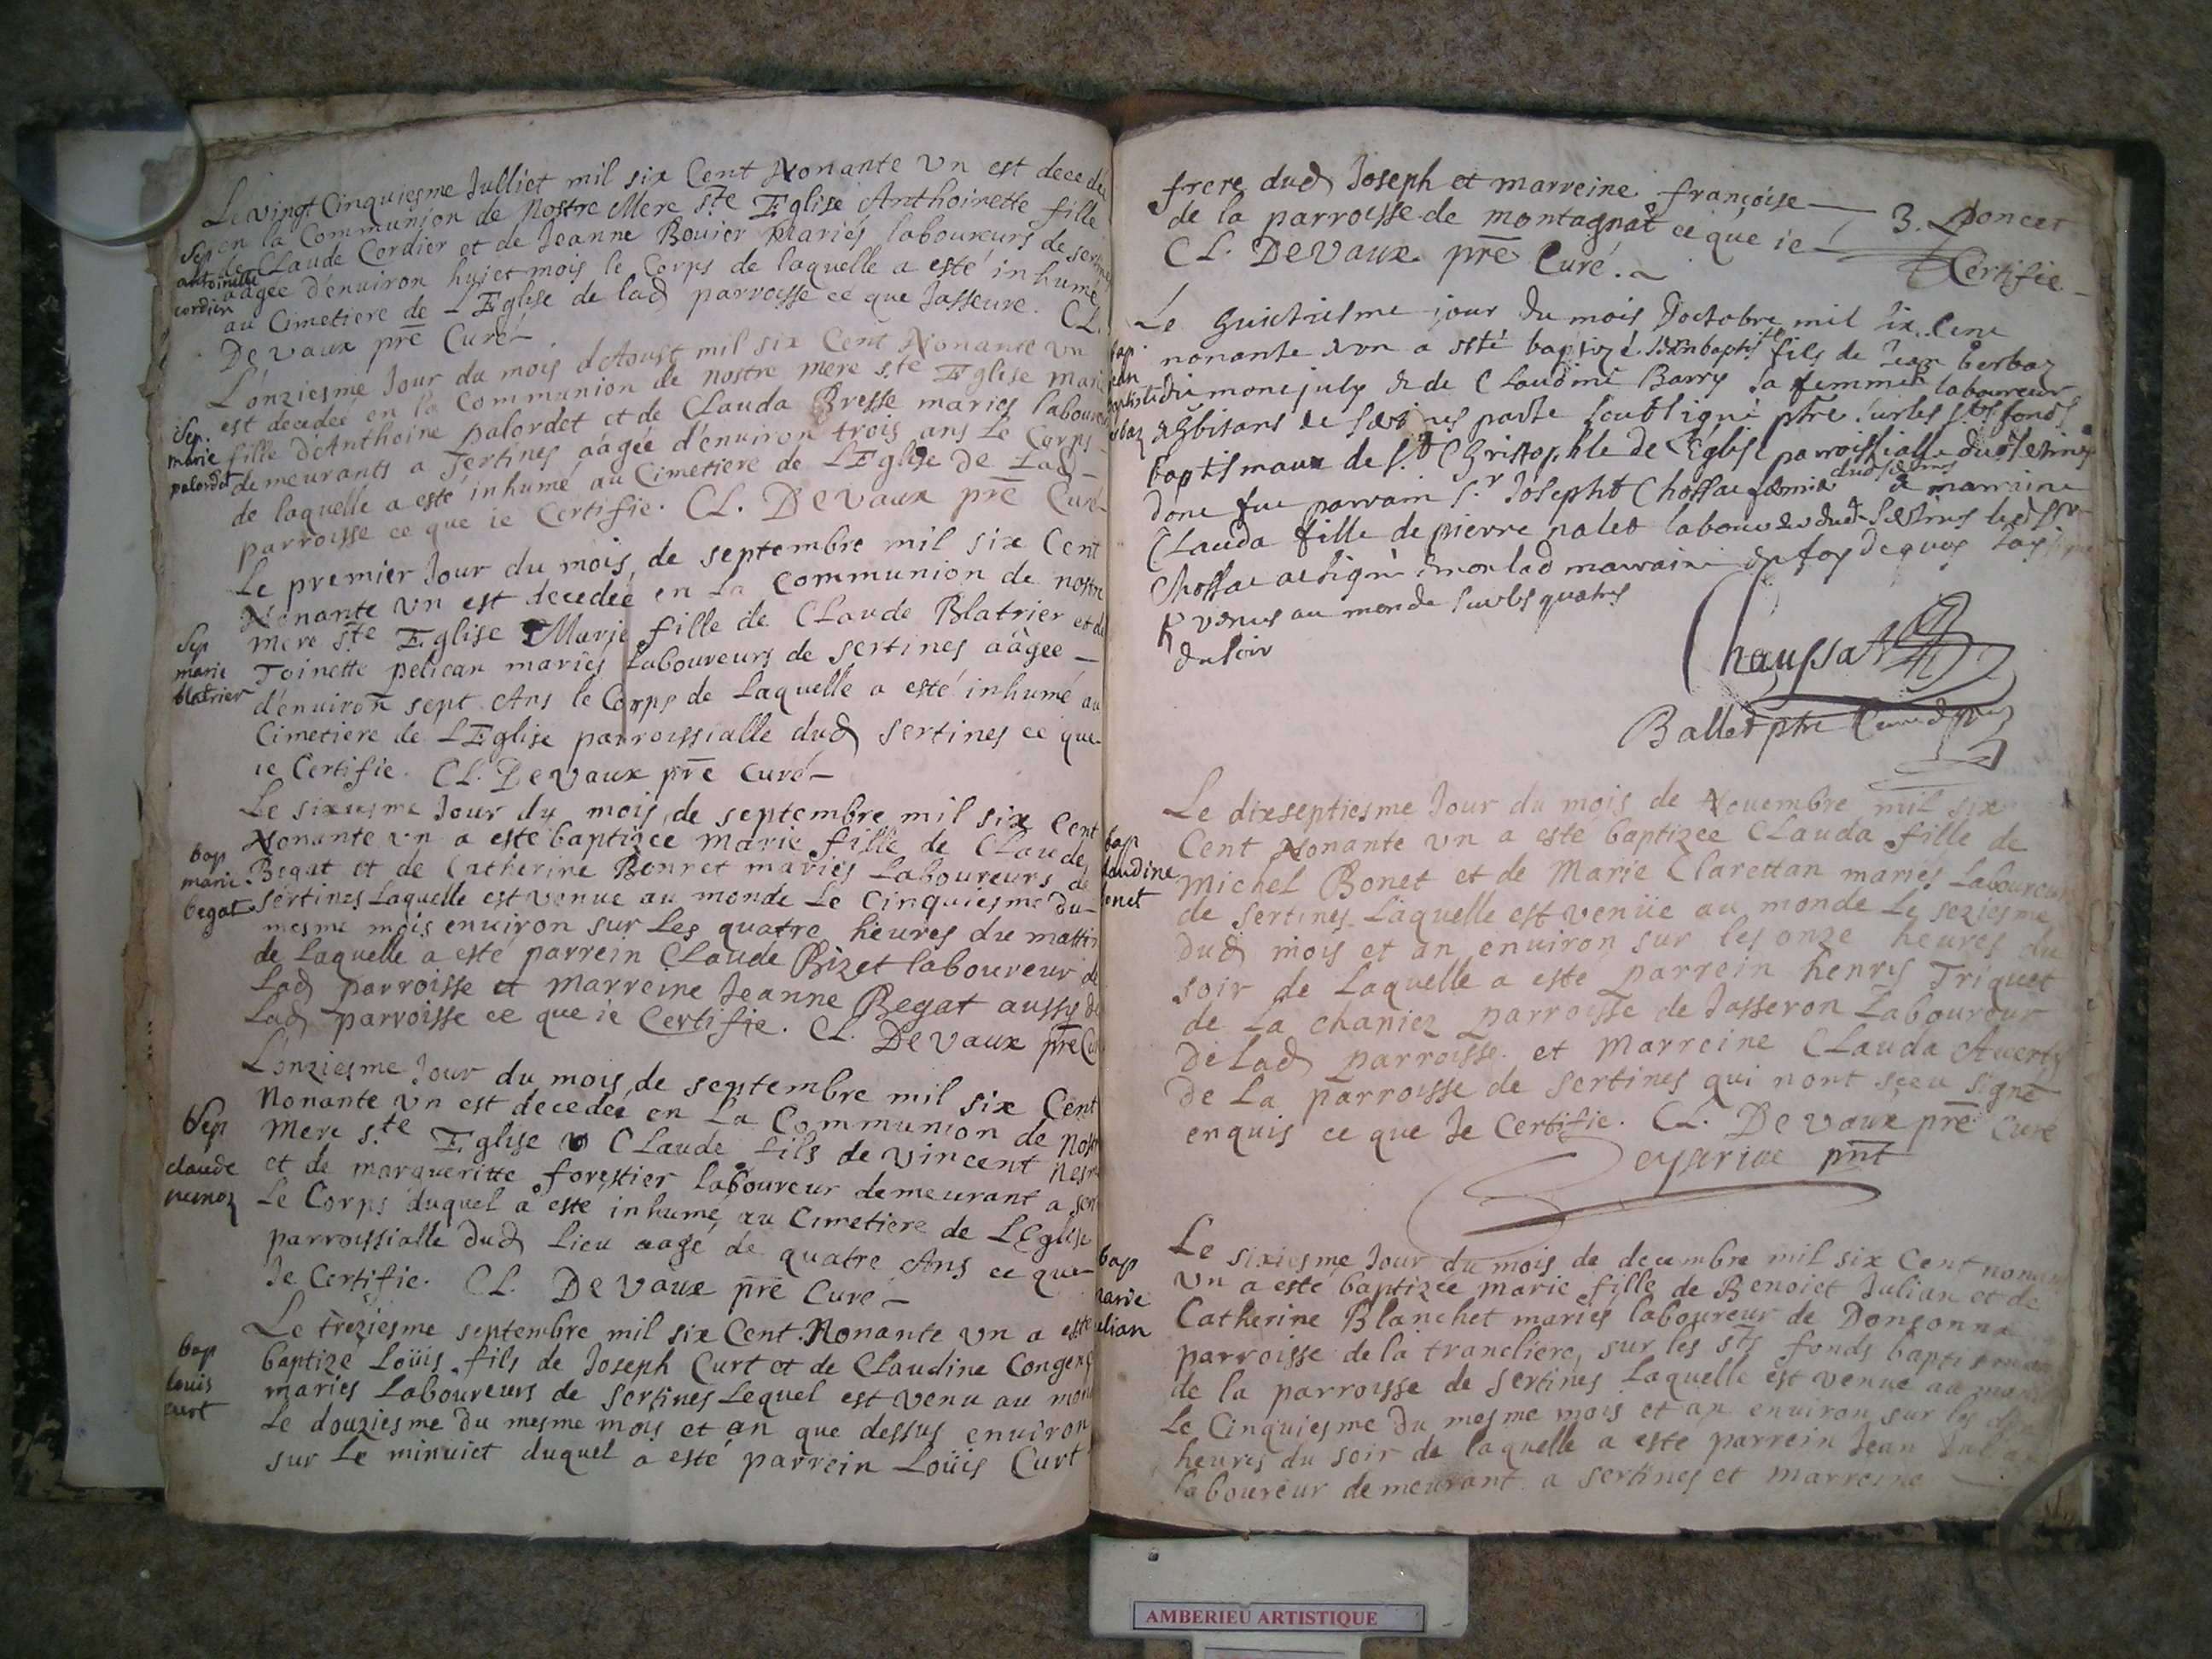 Le vingt Cinquiesme Julliet mil six Cent Nonante Vn est decedée
en la Communion de Nostre Mere S.te Eglise Anthoinette fille
de CLaude Cordier et de Jeanne Bouier Mariés laboureurs de
aagée d'enuiron huict mois le Corps de laquelle a esté inhumé
au Cimetiere de L'Eglise de lad parroisse ce que Jasseure. CL.
De vaux pre Curé
Sep
antoinette
cordier
L'onziesme Jour du mois d'Aoust mil six Cent Nonante Vn
est decedée en la Communion de nostre mere s.te Eglise Marie
fille d'Anthoine palordet et de CLauda Bresse mariés
demeurants a Sertines aàgée d'enuiron trois ans Le Corps
de laquelle a esté inhumé au Cimetiere de L'Eglise De Lad
parroisse ce que ie Certifie. CL. De vaux pre Curé
Sep.
marie
palordet
Le premier Jour du mois de septembre mil six Cent
Nonante vn est decedée en La Communion de nostre
mere S.te Eglise Marie fille de CLaude Blatrier et de
Toinette pelican mariés Laboureurs de sertines aàgée
d'enuiron sept Ans le Corps de Laquelle a esté inhumé au
Cimetiere de L'Eglise parroissialle dud sertines ce que
ie Certifie. CL. De vaux pre curé
Sep
marie
blatrier
Le sixiesme Jour du mois de septembre mil six Cent
Nonante vn a esté baptizée Marie fille de CLaude
Begat et de Catherine Bonnet mariés Laboureurs de
sertines Laquelle est venue au monde Le Cinquiesme du
mesme mois enuiron sur Les quatre heures du mattin
de Laquelle a esté parrein CLaude Bizet laboureur de
Lad parroisse et Marreine Jeanne Begat aussy de
Lad parroisse ce que ie Certifie. CL. De vaux pre
bap
marie
begat
L'onziesme Jour du mois de septembre mil six Cent
Nonante vn est decedeé en La Communion de
mere s.te Eglise CLaude fils de vincent
et de margueritte forestier laboureur demeurant a
Le Corps duquel a esté inhumé au Cimetiere de L'Eglise
parroissialle dud Lieu aagé de quatre Ans ce que
Je Certifie. CL. De vaux pre Curé
Sep
claude
Le treziesme septembre mil six Cent Nonante vn a esté
baptizé Loüis fils de Joseph Curt et de CLaudine
mariés Laboureurs de sertines Lequel est venu au
Le douziesme du mesme mois et an que dessus enuiron
sur Le minuict duquel a esté parrein Loüis Curt
bap
louis
curt
frere dud Joseph et marreine françoise 3. Poncet
de la parroisse de montagnat ce que ie Certifie
CL. De vaux pre Curé.
Le huictiesme jour du mois d'octobre mil six cent
nonante vn a esté baptizé fils de Jean berbaz
de monejuly & de Claudine Barry sa femme laboureur
&gbitans de par le soubsigné ptre sur les sts fonds
baptismaux de s.t Christophle de l'Eglise parroissialle
donc fut parrain s.r Joseph Chossat & marraine
Clauda fille de pierre palet
Chossat a signé & non lad marraine en foy de quoy
venus au monde sur les quatres
du soir
bap
Chaussat
Ballet ptre
Le dixseptiesme Jour du mois de Nouembre mil six
Cent Nonante vn a esté baptizée CLauda fille de
Michel Bonet et de Marie Clarettan mariés Laboureurs
de sertines. Laquelle est venüe au monde Le seziesme
dud mois et an enuiron sur les onze heures du
soir de Laquelle a esté parrein henry Triquet
de La chaniez parroisse de Jasseron Laboureur
de Lad parroisse. et Marreine CLauda
de La parroisse de sertines qui n'ont sçeu signé
enquis ce que Je Certifie. CL. De vaux pre Curé
bap
pnt
Le sixiesme Jour du mois de decembre mil six Cent
vn a esté baptizée marie fille de Benoict Julian et de
Catherine Blanchet mariés laboureur de Donsonnas
parroisse de la trancliere, sur les sts fonds
de la parroisse de sertines Laquelle est venue au
Le Cinquiesme du mesme mois et an enuiron sur les
heures du soir de laquelle a esté parrein Jean
laboureur demeurant a sertines et marreine
bap
AMBERIEU ARTISTIQUE